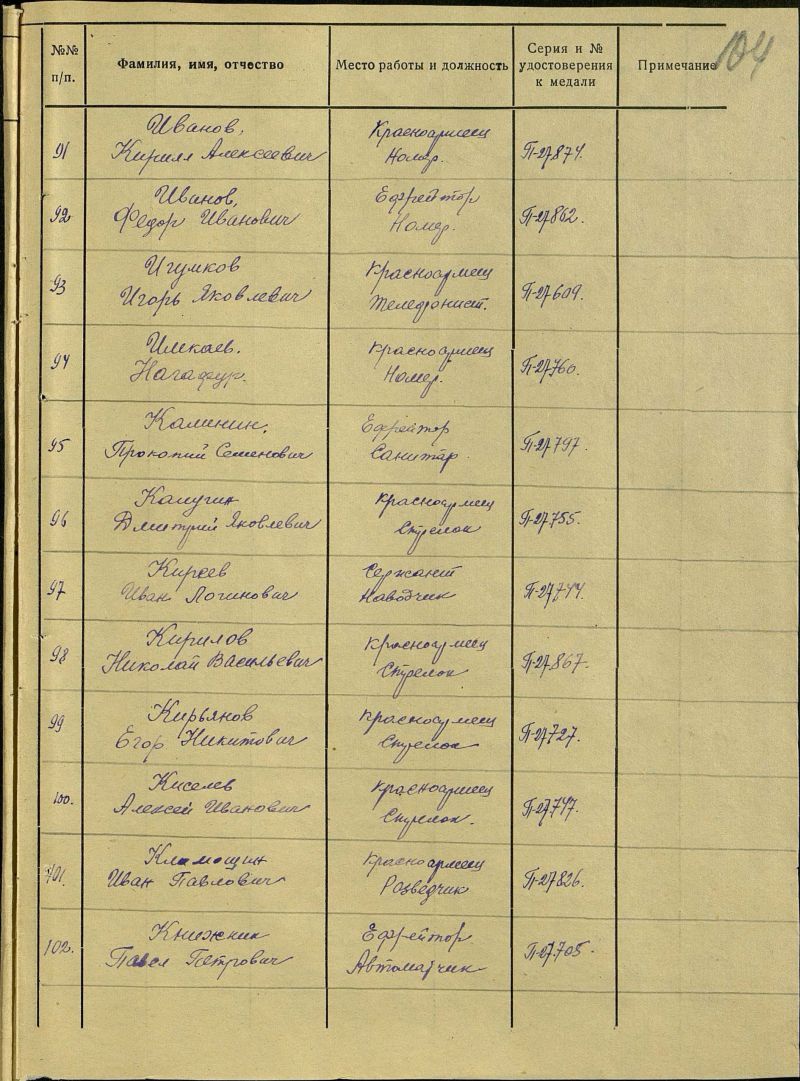 104
№№ п/п.
Фамилия, имя, отчество
Место работы и должность
Серия и № удостоверения к медали
Примечание
Иванов, Красноармеец
91 Кирилл Алексеевич Номер. П-27874.
Иванов, Ефрейтор
92 Федор Иванович Номер. П-27862.
Игумков Красноармеец
93 Игорь Яковлевич Телефонист. П-27609.
Имекаев. Красноармеец
94 Нагафур. Номер. П-27760.
Калинин, Ефрейтор
95 Прокопий Семенович Санитар. П-27797.
Калугин Красноармеец
96 Дмитрий Яковлевич Стрелок П-27755.
Киреев Сержант
97 Иван Логинович Наводчик П-27744.
Кирилов Красноармеец
98 Николай Васильевич Стрелок П-27867.
Кирьянов Красноармеец
99 Егор Никитович Стрелок П-27727.
Киселев Красноармеец
100. Алексей Иванович Стрелок. П-27747.
Кламощин Красноармеец
101. Иван Павлович Розведчик П-27826.
Книжник Ефрейтор
102. Павел Петрович Автоматчик П-27705.